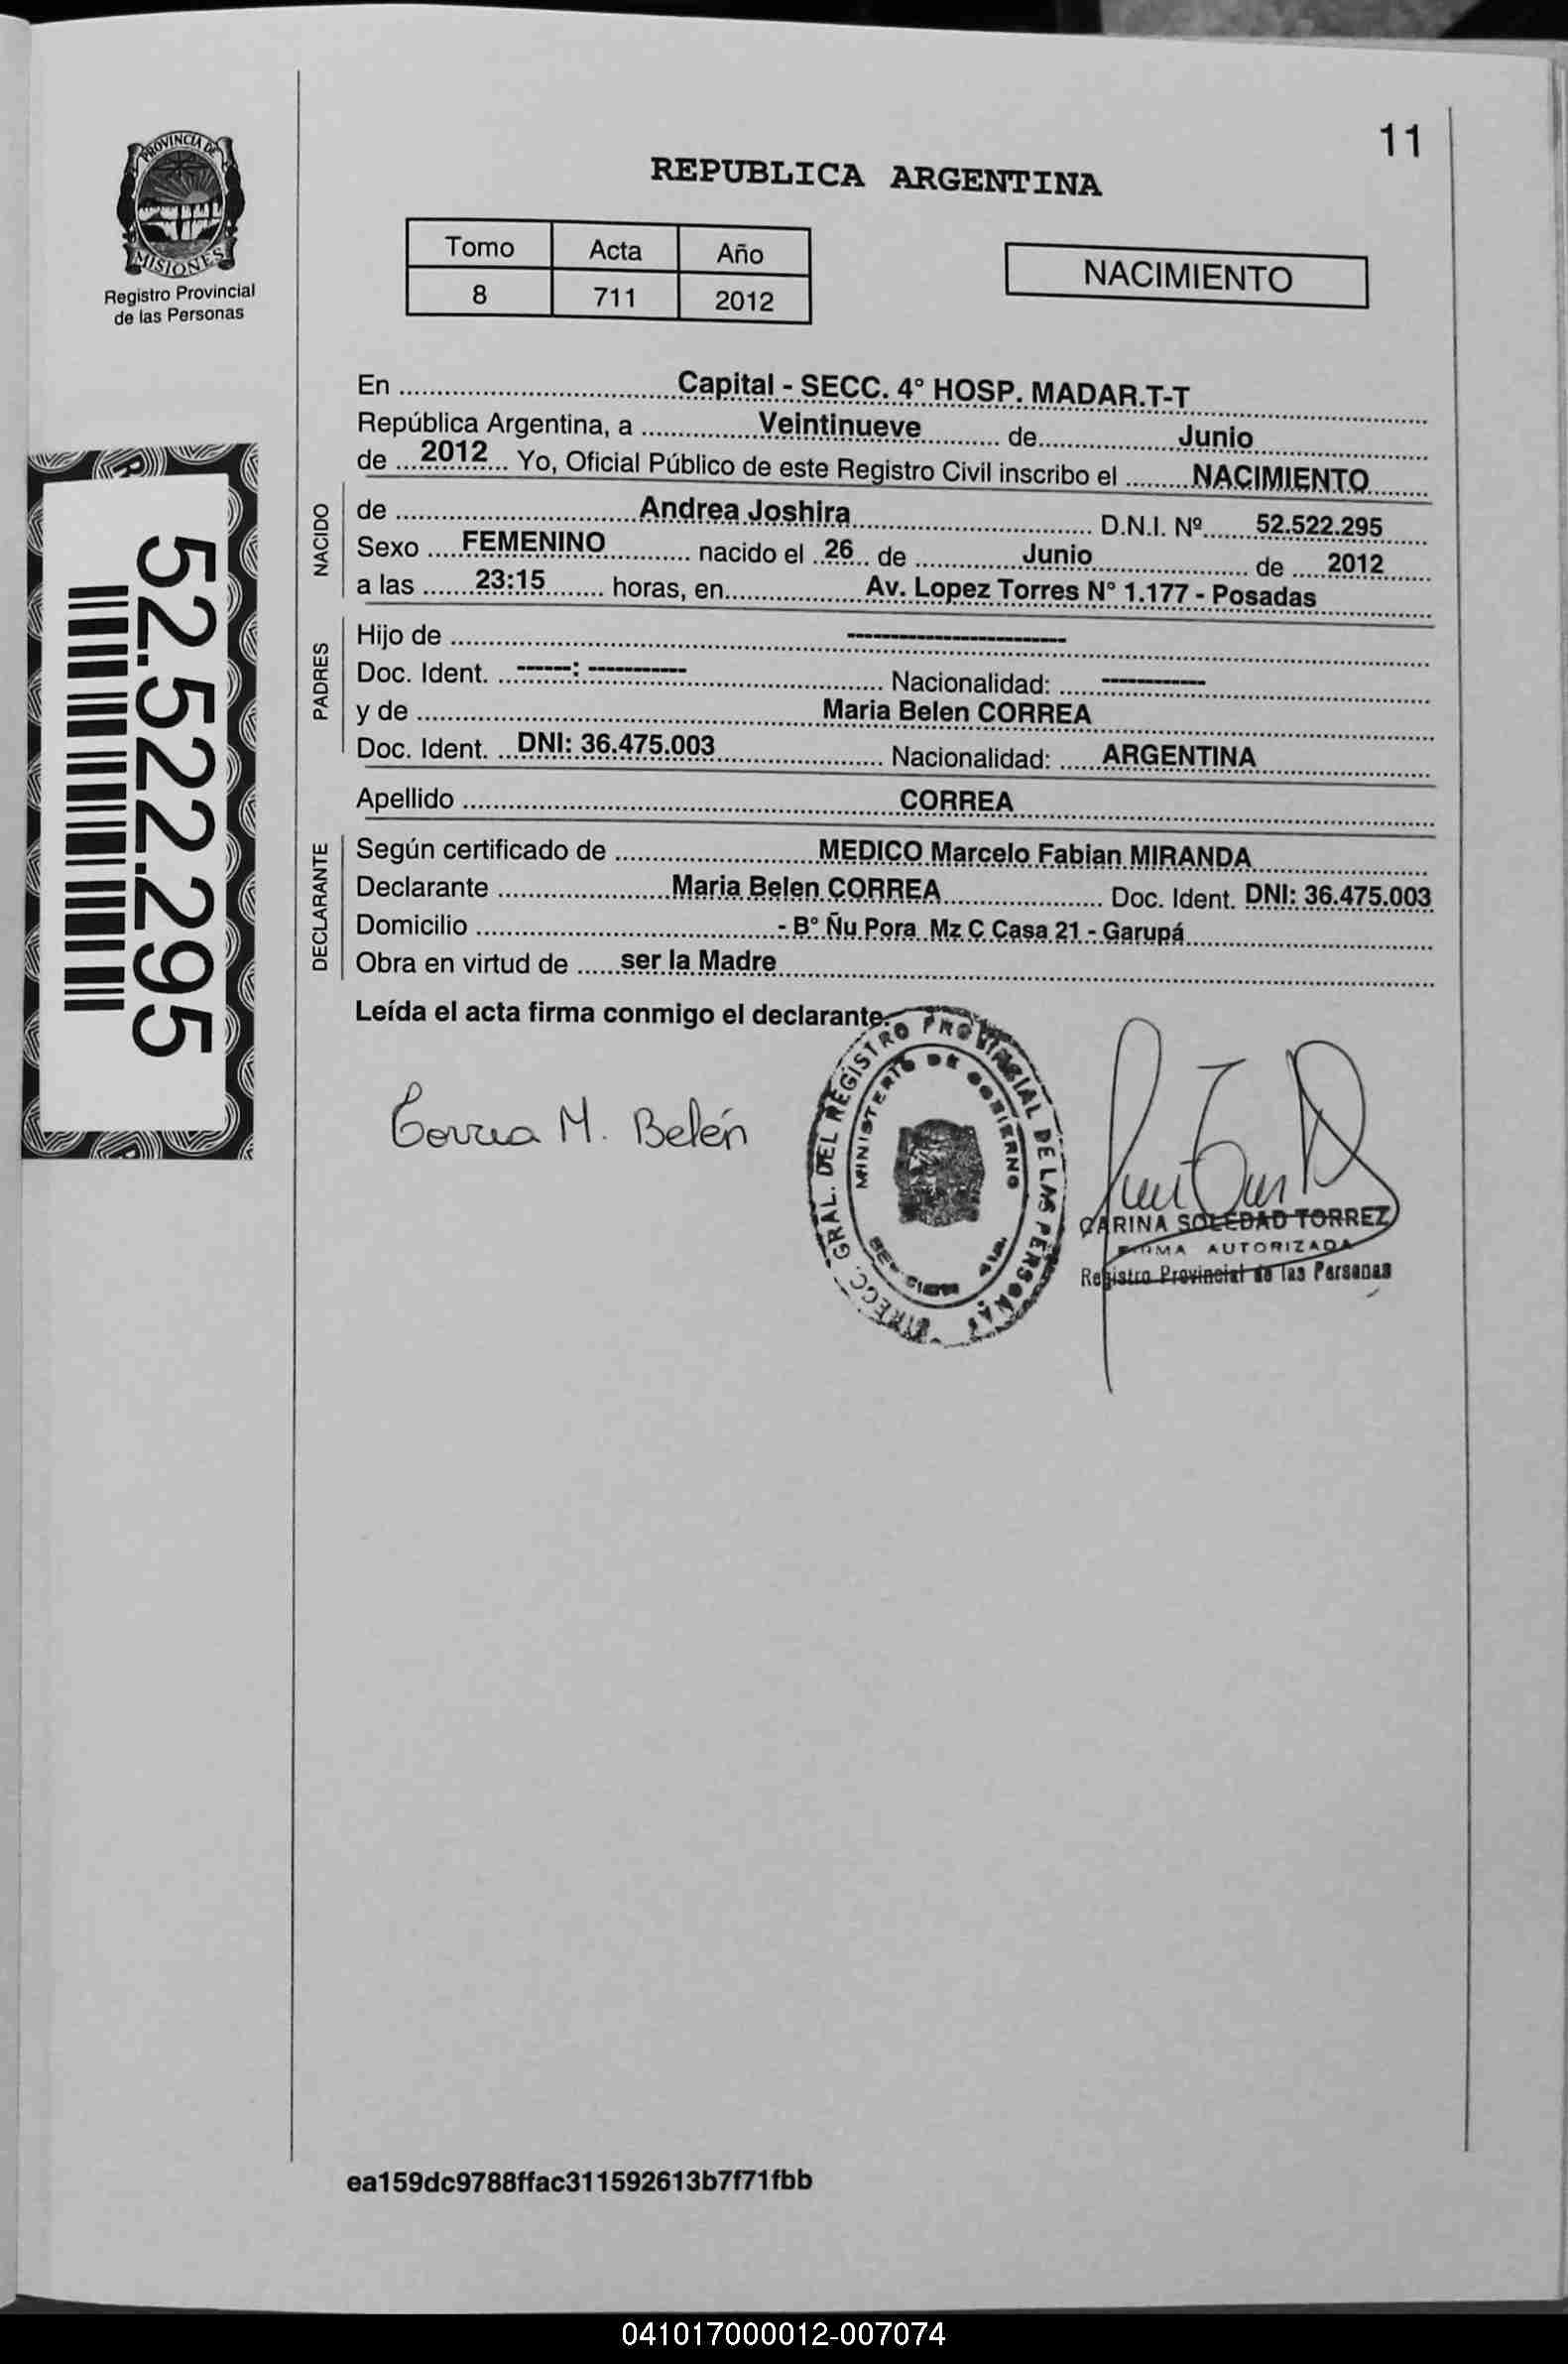 11
REPUBLICA ARGENTINA
PROVINCIA DE
MISIONES
Registro Provincial
de las Personas
Tomo Acta Año
8 711 2012
NACIMIENTO
En Capital - SECC. 4° HOSP. MADAR.T-T
República Argentina, a Veintinueve de Junio
de 2012 Yo, Oficial Público de este Registro Civil inscribo el NACIMIENTO
NACIDO
de Andrea Joshira D.N.I. Nº 52.522.295
Sexo FEMENINO nacido el 26 de Junio de 2012
a las 23:15 horas, en Av. Lopez Torres N° 1.177 - Posadas
PADRES
Hijo de -------------------------
Doc. Ident. ------: ----------- Nacionalidad: ------------
y de Maria Belen CORREA
Doc. Ident. DNI: 36.475.003 Nacionalidad: ARGENTINA
Apellido CORREA
DECLARANTE
Según certificado de MEDICO Marcelo Fabian MIRANDA
Declarante Maria Belen CORREA Doc. Ident. DNI: 36.475.003
Domicilio - B° Ñu Pora Mz C Casa 21 - Garupá
Obra en virtud de ser la Madre
Leída el acta firma conmigo el declarante.
52.522.295
Correa M. Belén
DIRECC. GRAL. DEL REGISTRO PROVINCIAL DE LAS PERSONAS
MINISTERIO DE GOBIERNO
CARINA SOLEDAD TORREZ
FIRMA AUTORIZADA
Registro Provincial de las Personas
ea159dc9788ffac311592613b7f71fbb
041017000012-007074